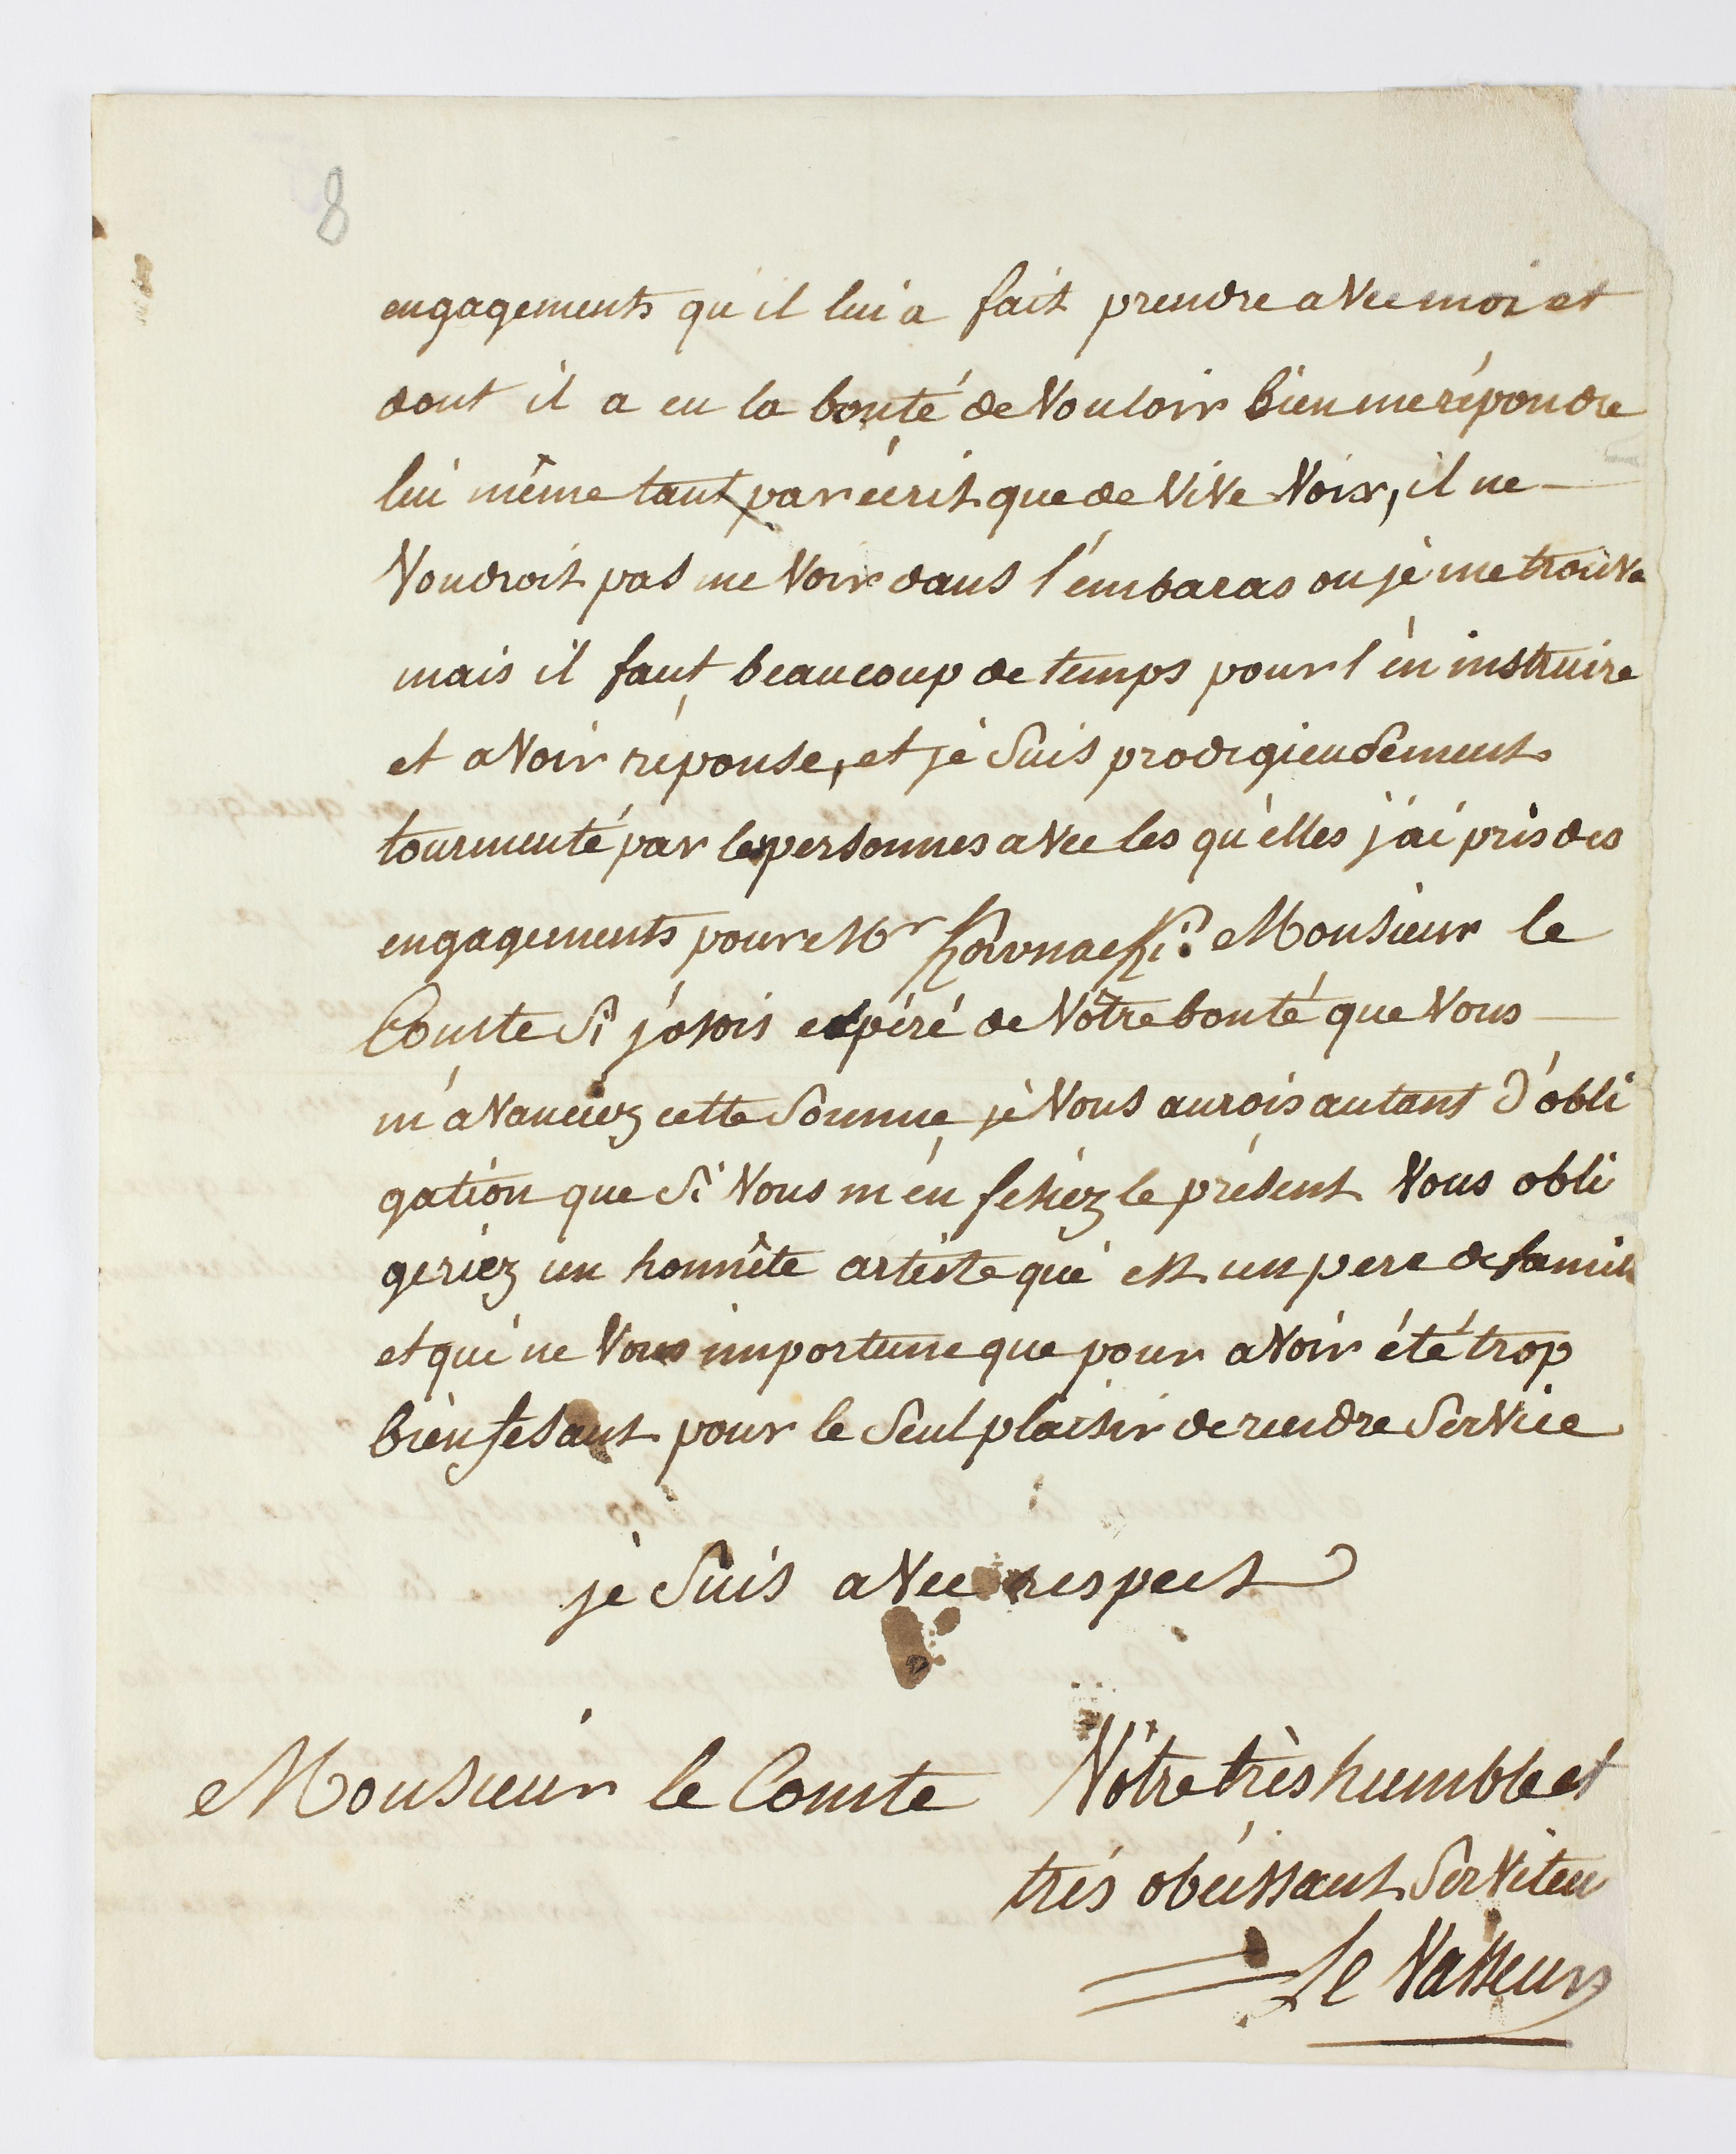 8
engagements qu'il lui a fait prendre avec moi et
dont il a eu la bonté de Vouloir bien me répondre
lui même tant par écrit que de Vive Voix, il ne
Voudroit pas me Voir dans l'émbaras ou jé me trouve
mais il faut beaucoup de temps pour l'én instruire
et avoir réponse, et jé suis prodigieusement
tourmenté par les personnes avec les qu'elles j'ai pris des
engagements pour Mr Monsieur le
Comte si j'osois espéré de Vôtre bonté que Vous
m'avanciez cette somme jé Vous aurois autant d'obli
gation que si Vous m'én fesiez le présent Vous obli
geriez un honnête artiste qui est un pere de famille
et qui ne Vous importune que pour avoir été trop
bienfesant pour le seul plaisir de rendre service
jé suis avec respect
Monsieur le Comte Vôtre très humble et
très obéissant serviteu
Le Vasseur